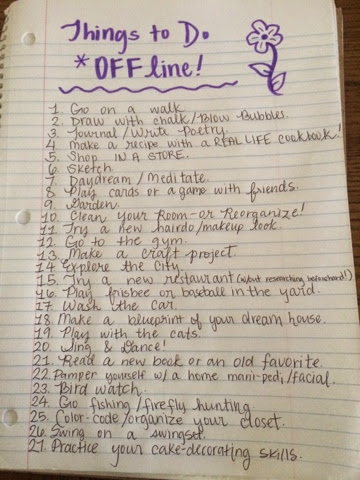 Things to Do
*OFFline!
1. Go on a walk
2. Draw with chalk/Blow Bubbles.
3. Journal/Write Poetry.
4. Make a recipe with a REAL LIFE cookbook!
5. Shop IN A STORE.
6. Sketch
7. Daydream/Meditate.
8. Play cards or a game with friends.
9. Garden.
10. Clean your Room-or Reorganize!
11. Try a new hairdo/makeup look.
12. Go to the gym.
13. Make a craft project.
14. Explore the City.
15. Try a new restaurant (w/out researching beforehand!)
16. Play frisbee or baseball in the yard.
17. Wash the car.
18. Make a blueprint of your dream house.
19. Play with the cats.
20. Sing & Dance!
21. Read a new book or an old favorite.
22. Pamper yourself w/ a home mani-pedi/facial.
23. Bird watch.
24. Go fishing/firefly hunting.
25. Color-code/organize your closet.
26. Swing on a swingset.
27. Practice your cake-decorating skills.